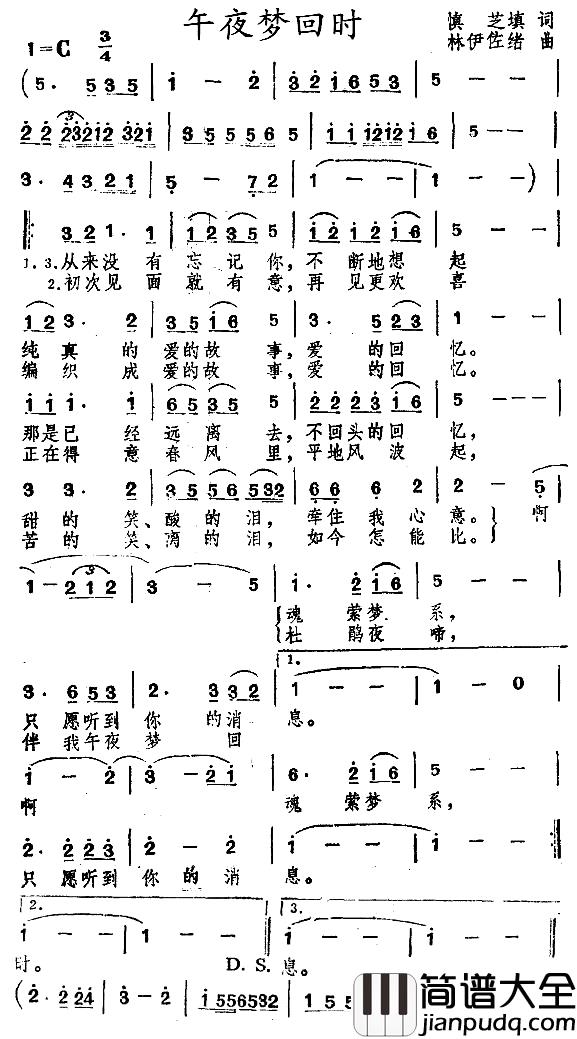 午夜梦回时
慎 芝填 词
林伊佐绪 曲
1=C 3/4
( 5. 5 3 5 | 1 - 2 | 3 2 1 2 1 6 | 5 - - |
2 2 2 3 2 1 2 3 2 1 | 5 3 5 5 5 6 5 | 1 1 1 2 1 2 1 6 | 5 - - |
3. 4 3 2 1 | 5 - 7 2 | 1 - - | 1 - - )
3 2 1. 1 | 1 2 3 2 5 | 1 2 1 2 1 6 | 5 - - |
1.3.从来没 有 忘 记 你，不 断地想 起
2.初次见 面 就 有 意，再 见更欢 喜
1 2 3. 2 | 3 5 1 6 5 | 3. 5 2 3 | 1 - - |
纯 真 的 爱的故 事，爱 的回 忆。
编 织 成 爱的故 事，爱 的回 忆。
1 1 1. 1 | 6 5 3 5 5 | 2 2 2 3 1 6 | 5 - - |
那是已 经 远 离 去，不回头的回 忆，
正在得 意 春 风 里，平地风 波 起，
3 3 2 | 3 5 5 6 5 5 3 2 | 6 6 6 2 | 2 - 5 |
甜 的 笑、酸 的 泪， 牵住 我 心 意。 啊
苦 的 笑、离 的 泪， 如今 怎 能 比。
1 - 2 1 2 | 3 - 5 | 1. 2 1 6 | 5 - - |
魂 萦梦 系，
杜 鹃夜 啼，
3. 6 5 3 | 2. 3 3 2 | 1 - - | 1 - 0
1.
只 愿听到 你 的消 息。
伴 我午夜 梦 回
1 - 2 | 3 - 2 1 | 6. 2 1 6 | 5 - - |
啊 魂 萦梦 系，
2. 2 2 3 | 2 - 2 | 1 - - | 1 - - :|
只 愿听到 你 的 消 息。
2. 3.
1 - - | 1 - - | 1 - - | 1 - -
时。 D.S. 息。
( 2. 2 2 4 | 3 - 2 | 1 5 5 6 5 3 2 | 1 5 5
简谱大全
jianpudq.com